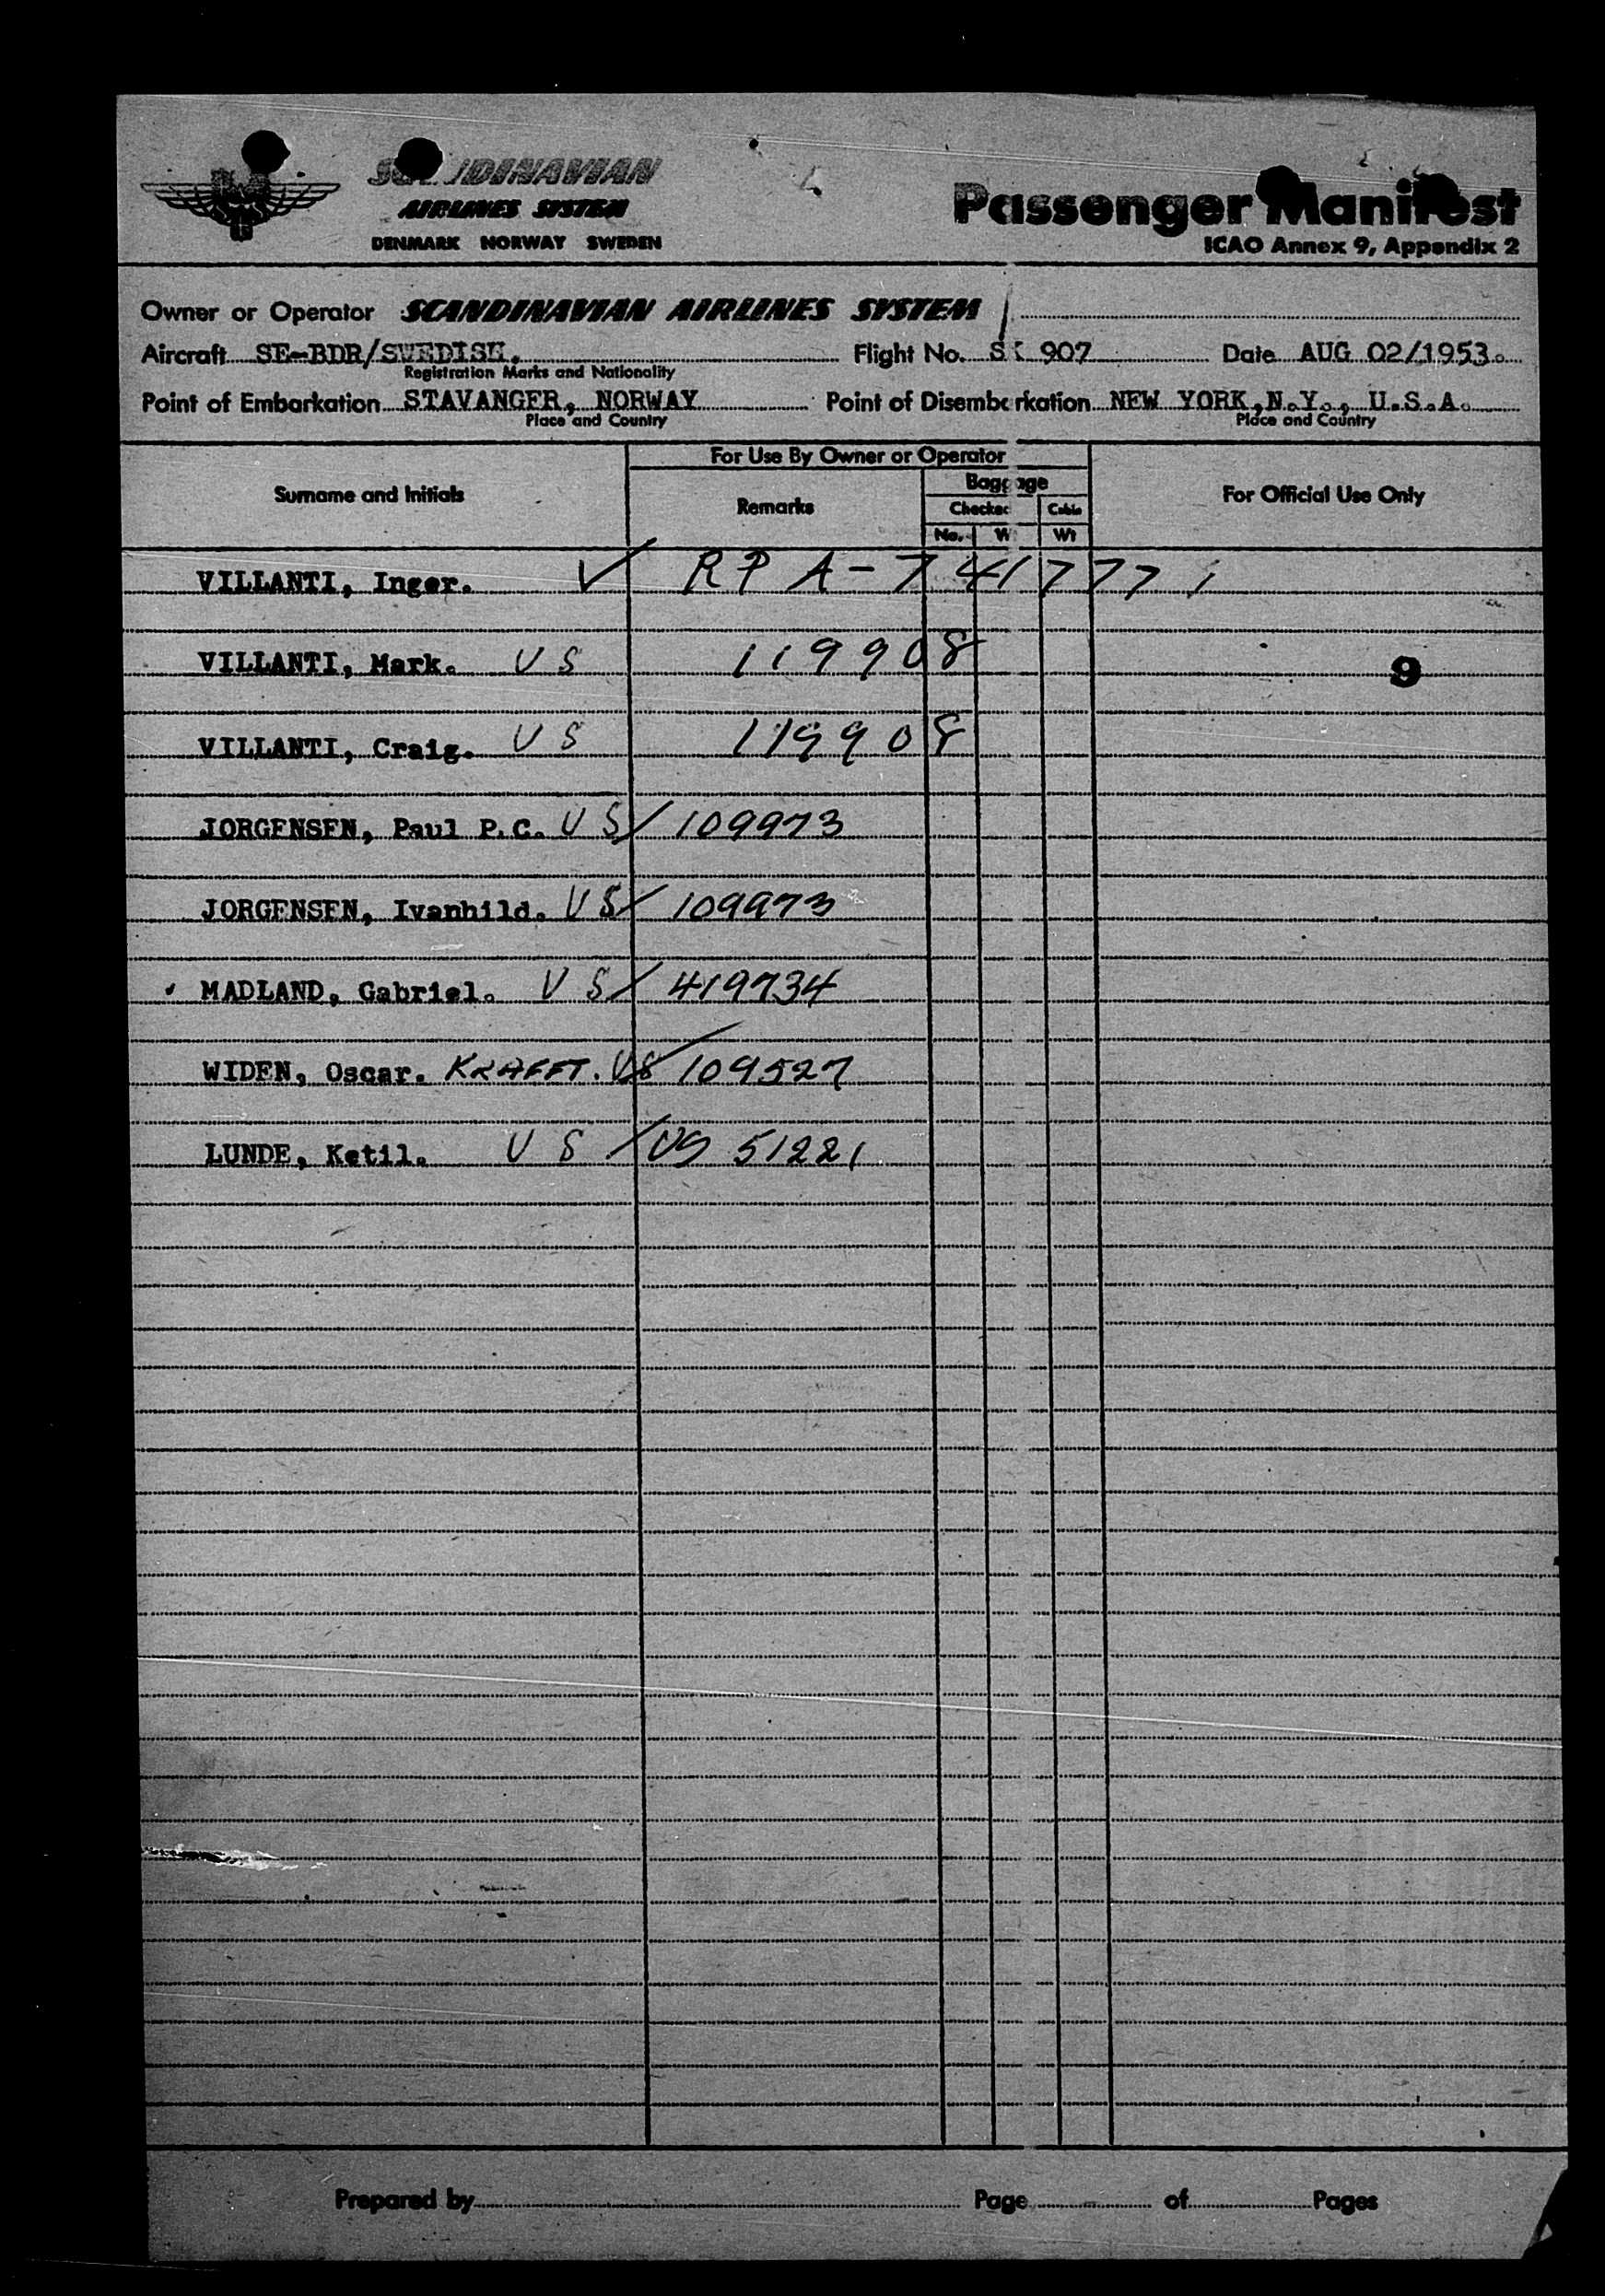 SCANDINAVIAN
AIRLINES SYSTEM
DENMARK NORWAY SWEDEN
Passenger Manifest
ICAO Annex 9, Appendix 2
Owner or Operator SCANDINAVIAN AIRLINES SYSTEM
Aircraft SE-BDR/SWEDISH. Flight No. SK 907 Date AUG 02/1953.
Registration Marks and Nationality
Point of Embarkation STAVANGER, NORWAY Point of Disembarkation NEW YORK, N.Y., U.S.A.
Place and Country Place and Country
For Use By Owner or Operator
Surname and Initials Remarks Baggage For Official Use Only
Checked Cabin
No. Wt Wt
VILLANTI, Inger. ✓ RP A-7417771
VILLANTI, Mark. US 119908 9
VILLANTI, Craig. US 119908
JORGENSEN, Paul P.C. US / 109973
JORGENSEN, Ivanhild. US / 109973
MADLAND, Gabriel. US / 419734
WIDEN, Oscar. KRAFFT. US / 109527
LUNDE, Ketil. US / US 51221
Prepared by Page of Pages